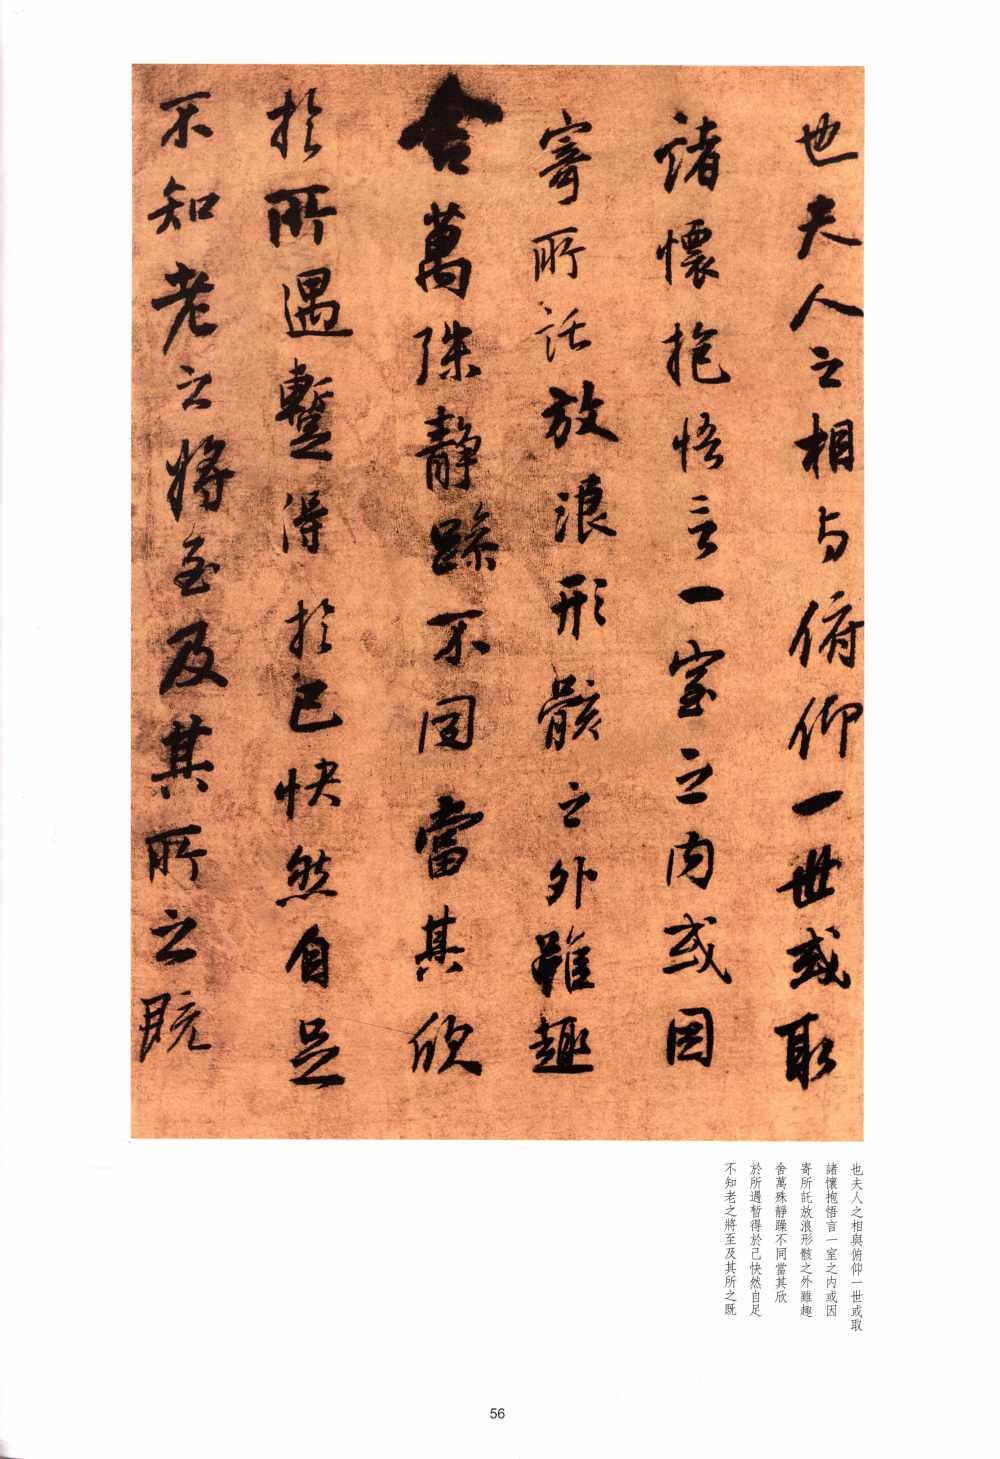 也夫人之相与俯仰一世或取
諸懷抱悟言一室之内或因
寄所託放浪形骸之外雖趣
舍萬殊靜躁不同當其欣
於所遇暫得於己快然自足
不知老之將至及其所之既
也夫人之相與俯仰一世或取
諸懷抱悟言一室之內或因
寄所託放浪形骸之外雖趣
舍萬殊靜躁不同當其欣
於所遇暫得於己快然自足
不知老之將至及其所之既
56